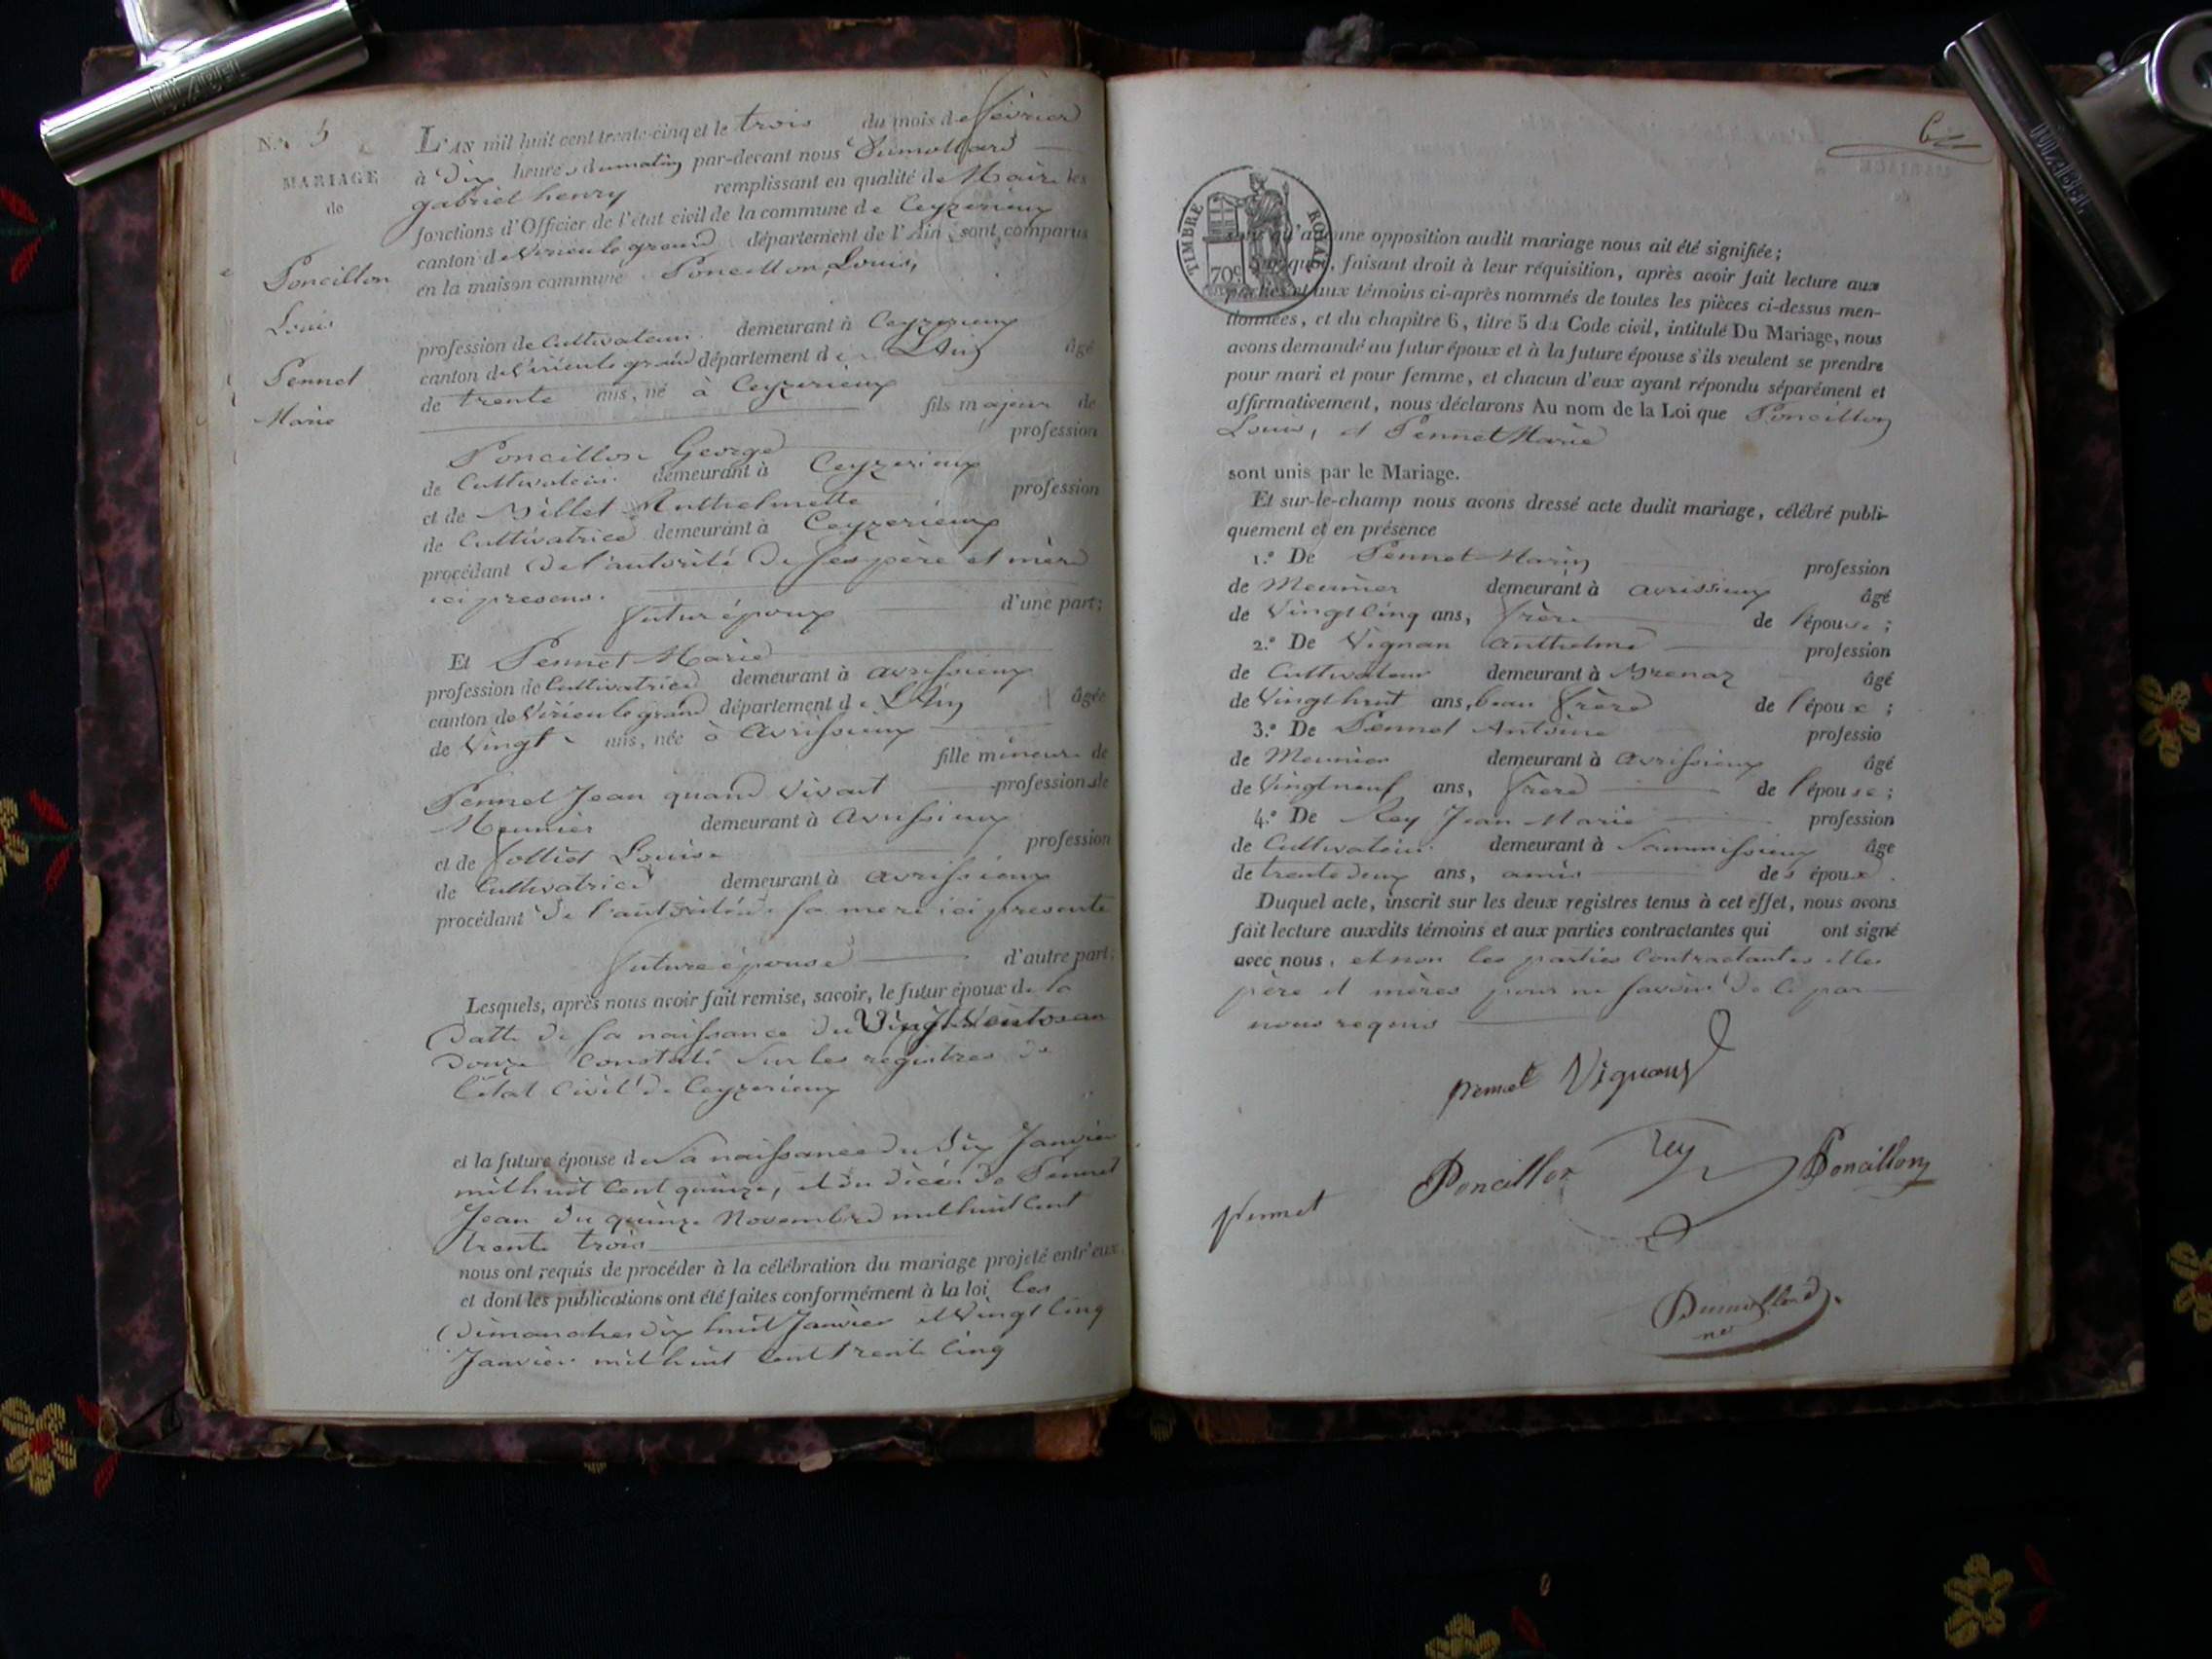 N.° 5
MARIAGE
de
Poncillon
Louis
Pennet
Marie
L'AN mil huit cent trente-cinq et le trois du mois de février
à Dix heures du matin par-devant nous Dumollard
gabriel henry remplissant en qualité de Maire les
fonctions d'Officier de l'état civil de la commune de Ceyzerieux
canton de Virieu le grand département de l'Ain, sont comparus
en la maison commune Poncillon Louis,
profession de Cultivateur demeurant à Ceyzerieux
canton de Virieu le grand département de L'Ain âgé
de trente ans, né à Ceyzerieux
fils majeur de
Poncillon George profession
de Cultivateur demeurant à Ceyzerieux
et de Millet Anthelmette profession
de Cultivatrice demeurant à Ceyzerieux
procédant de l'autorité de ses père et mère
ici presens.
futur époux d'une part;
Et Pennet Marie
profession de Cultivatrice demeurant à avrissieux
canton de Virieu le grand département de L'Ain âgée
de Vingt ans, née à Avrissieux
fille mineure de
Pennet Jean quand Vivait profession de
Meunier demeurant à Avrissieux
et de Jolliet Louise profession
de Cultivatrice demeurant à avrissieux
procédant de l'autorité de sa mere ici presente
future épouse d'autre part;
Lesquels, après nous avoir fait remise, savoir, le futur époux de la
Datte de sa naissance du Vingt Ventose an
Douze Constaté sur les registres de
l'état Civil de Ceyzerieux
et la future épouse de sa naissance du Dix Janvier
mil huit Cent quinze, et du Décès de Pennet
Jean du quinze Novembre mil huit cent
trente trois
nous ont requis de procéder à la célébration du mariage projeté entr'eux,
et dont les publications ont été faites conformément à la loi les
Dimanches dix huit Janvier et Vingt Cinq
Janvier mil huit Cent trente Cinq
6
TIMBRE ROYAL
70c
sans qu'aucune opposition audit mariage nous ait été signifiée;
quoi, faisant droit à leur réquisition, après avoir fait lecture aux
parties et aux témoins ci-après nommés de toutes les pièces ci-dessus men-
tionnées, et du chapitre 6, titre 5 du Code civil, intitulé Du Mariage, nous
avons demandé au futur époux et à la future épouse s'ils veulent se prendre
pour mari et pour femme, et chacun d'eux ayant répondu séparément et
affirmativement, nous déclarons Au nom de la Loi que Poncillon
Louis, et Pennet Marie
sont unis par le Mariage.
Et sur-le-champ nous avons dressé acte dudit mariage, célébré publi-
quement et en présence
1.° De Pennet Marin profession
de Meunier demeurant à avrissieux âgé
de Vingt Cinq ans, frère de l'épouse;
2.° De Vignan Anthelme profession
de Cultivateur demeurant à Brenaz âgé
de Vingt huit ans, beau frère de l'époux;
3.° De Pennet Antoine professio
de Meunier demeurant à Avrissieux âgé
de Vingt neuf ans, frère de l'épouse;
4.° De Rey Jean Marie profession
de Cultivateur demeurant à âge
de trente deux ans, amis des époux.
Duquel acte, inscrit sur les deux registres tenus à cet effet, nous avons
fait lecture auxdits témoins et aux parties contractantes qui ont signé
avec nous, et non les parties Contractantes et les
père et mères pour ne savoir de ce par
nous requis
pennet Vignan
Poncillon rey Poncillon
pennet
Dumollard